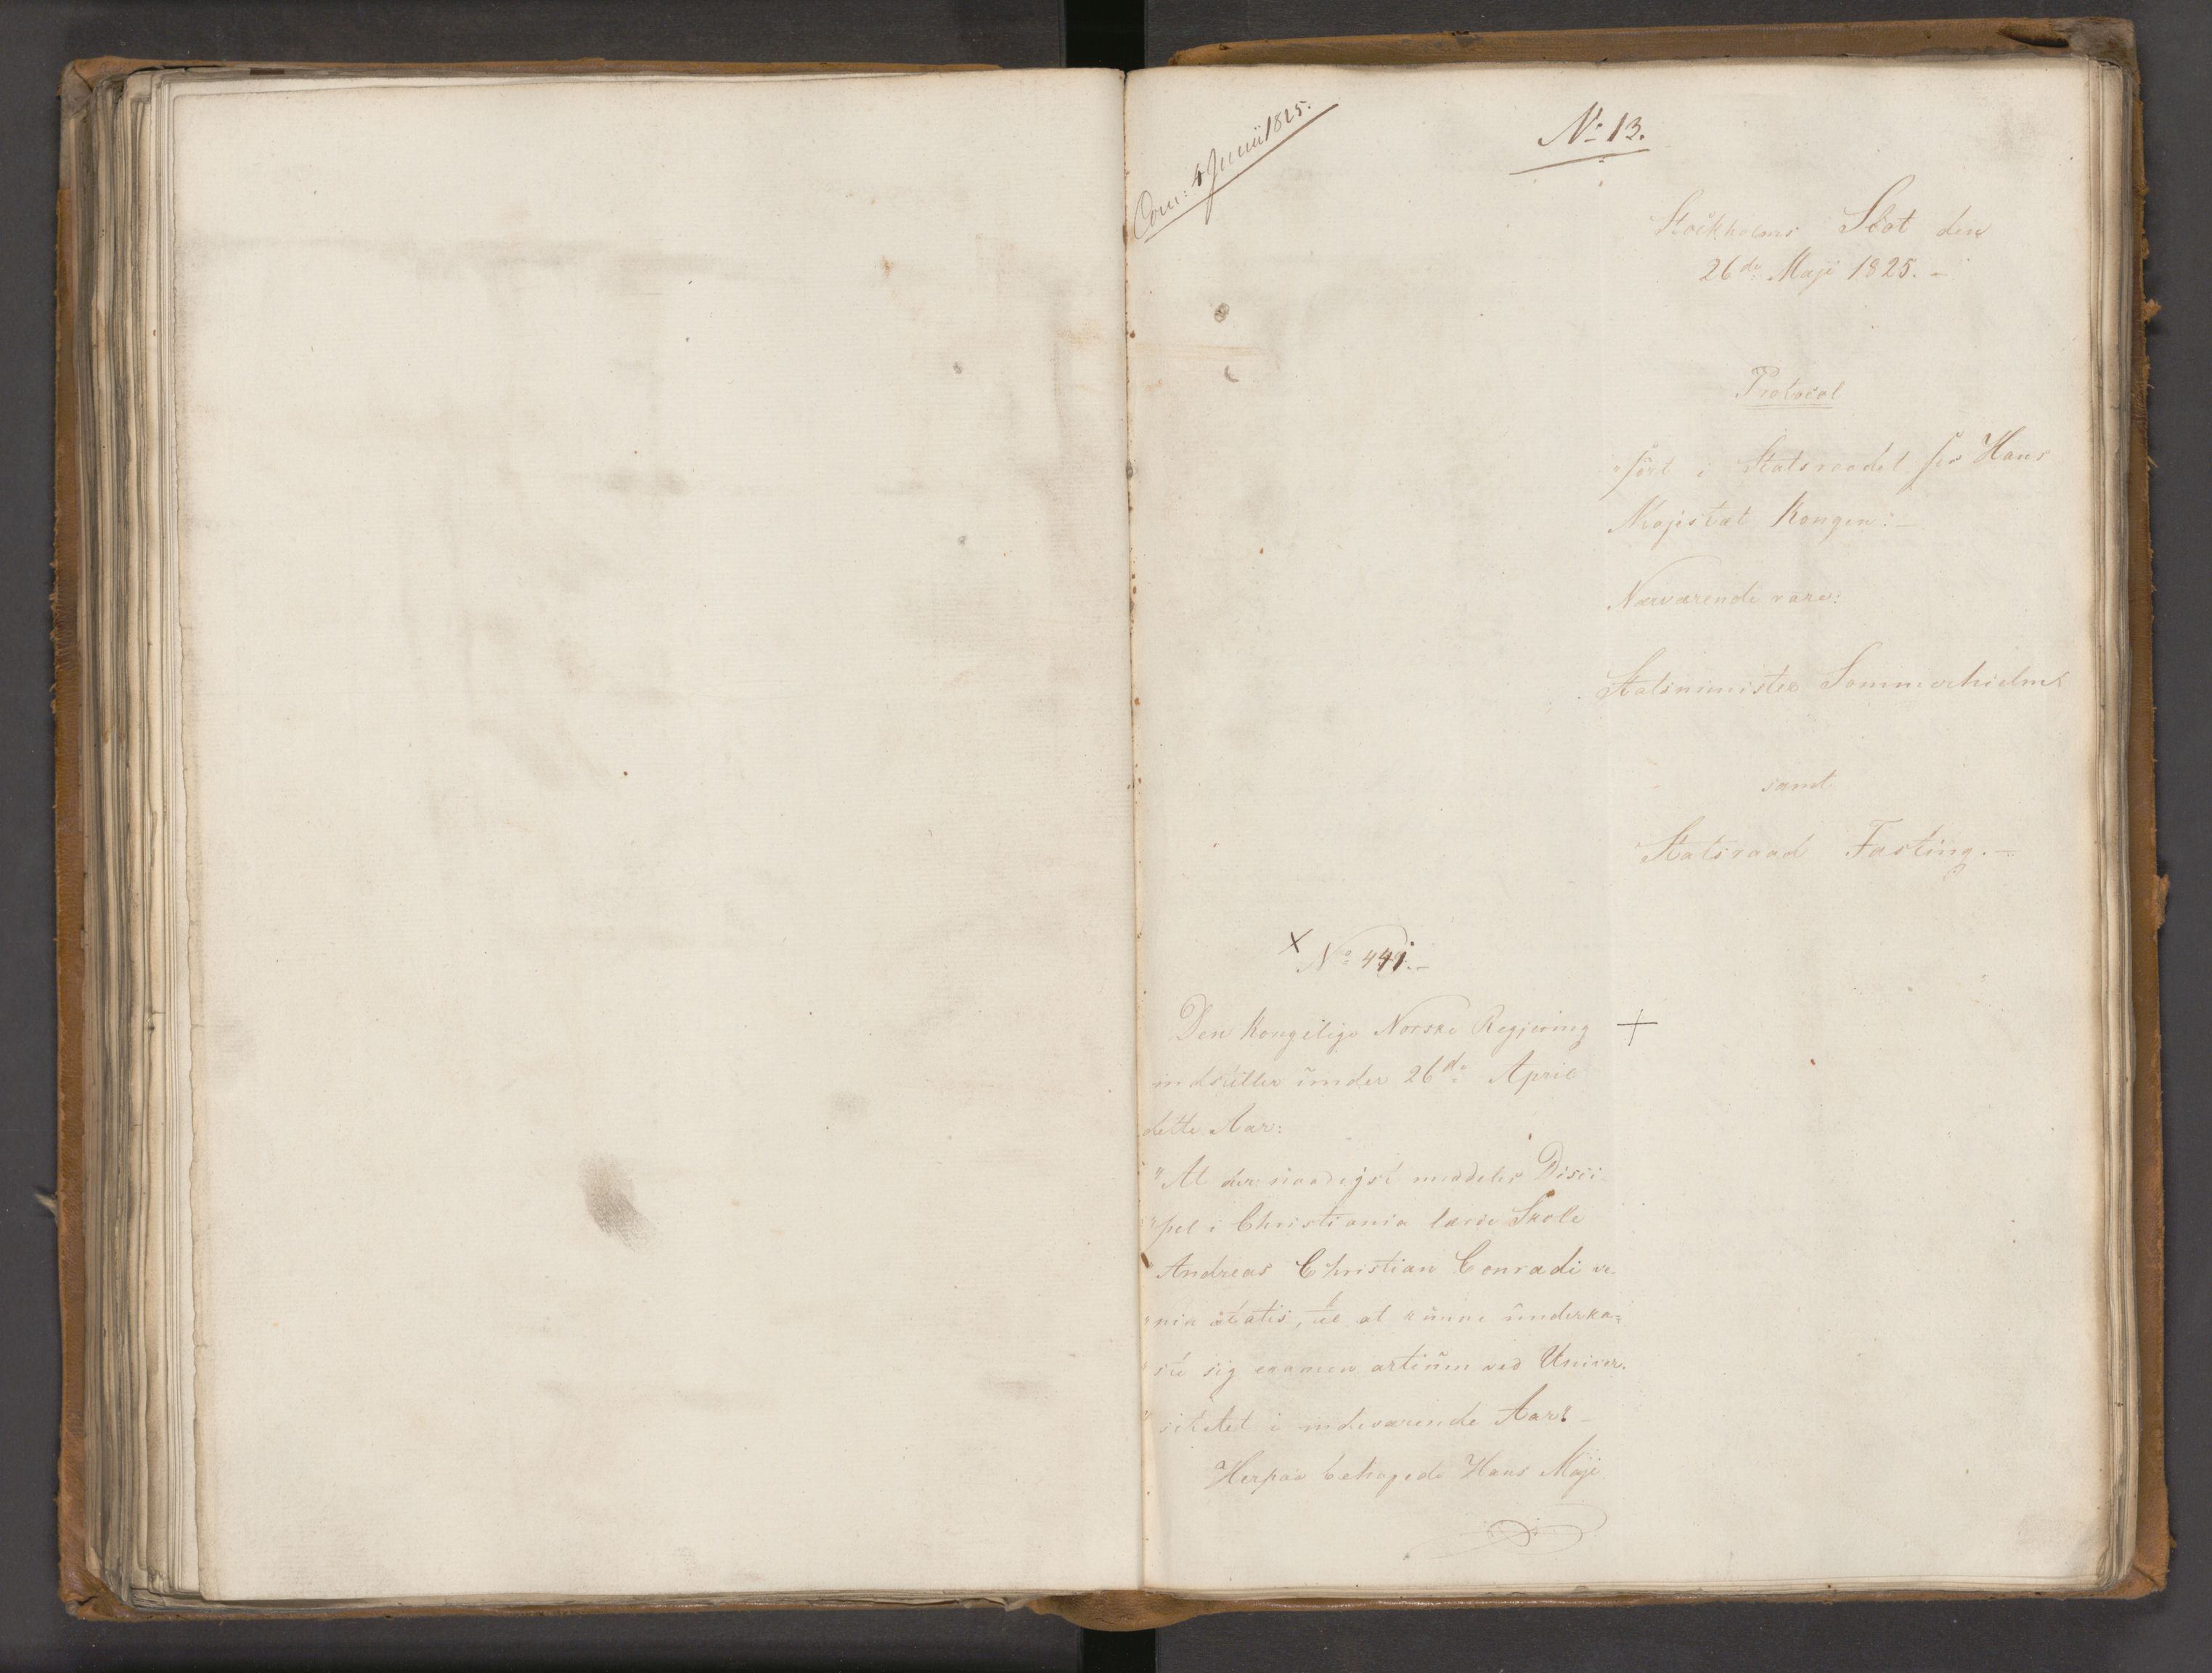 Com: 4 Junii 1825.
No 13.
Stockholms Slot den
26de Maji 1825. -
Protocol
ført i Statsraadet for Hans
Majestæt Kongen: -
Nærværende vare:
Statsminister Sommerhielm
samt
Statsraad Fasting. -
x No 441. -
Den Kongelige Norske Regjering +
indstiller under 26de April
dette Aar:
"At der naadigst meddeles Disci-
"pel i Christiania lærde Skole
"Andreas Christian Conradi ve-
"nia ætatis, til at kunne underka=
"ste sig examen artium ved Univer-
"sitetet i indeværende Aar" -
Herpaa behagede Hans Maje